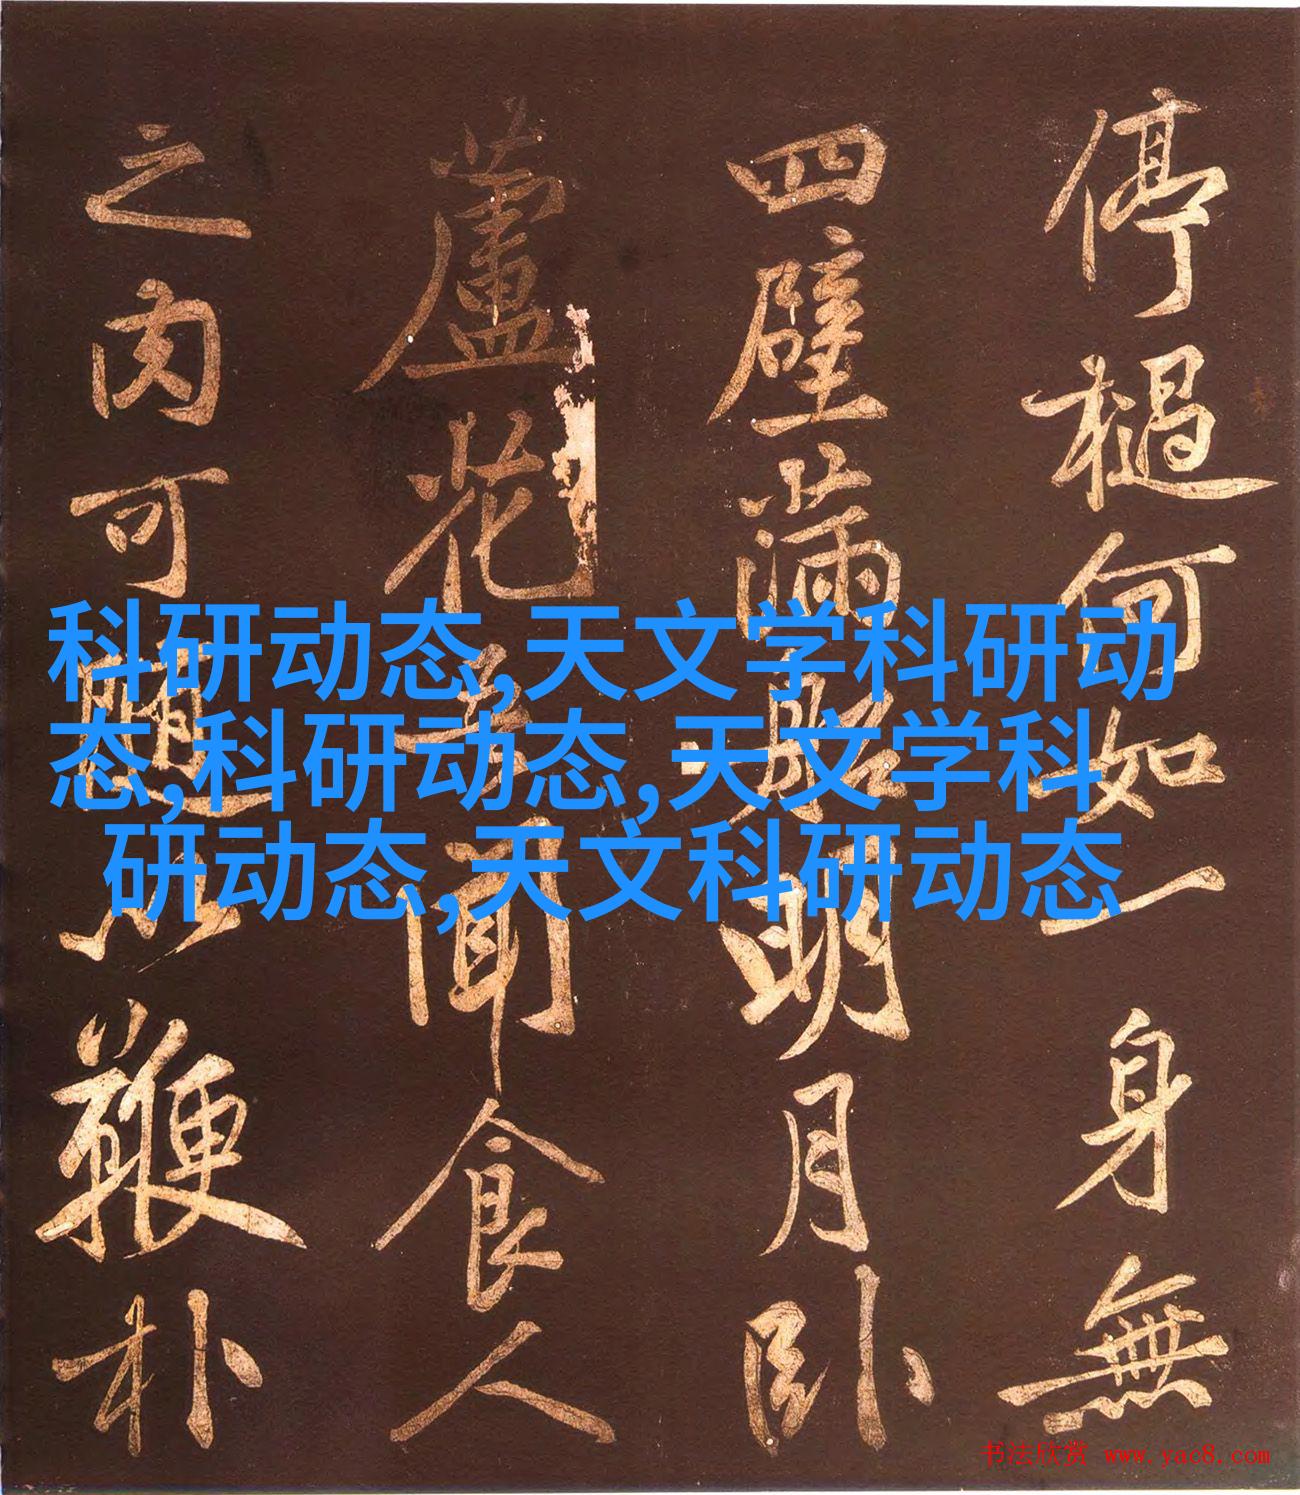 停檛何如一身無
四壁滿船明月卧
蘆花吾聞食人
之肉可隨以鞭朴
科研动态,天文学科研动
态,科研动态,天文学科
研动态,天文科研动态
书法欣赏 www.yac8.com